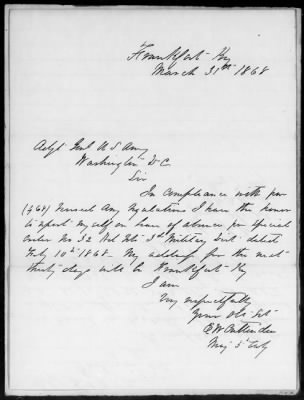 Frankfort Ky
March 31st 1868
Adjt Genl U S Army
Washington D C
Sir
In compliance with par
(468) Revised Army Regulations I have the honor
to report myself on leave of absence per Special
order No 32 3d Military Dist dated
Feby 10th 1868. My address for the next
thirty days will be Frankfort Ky
I am
Very respectfully
Your obt Svt
Crittenden
Maj 5" Caly